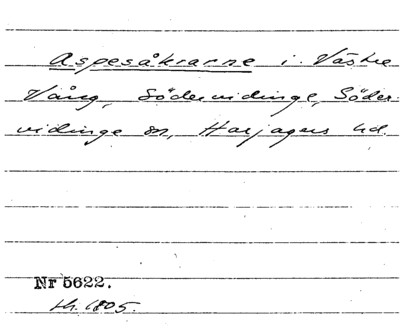 Aspesåkrarne i Västre
Vång, Södervidinge, Söder-
vidinge sn, Harjagers hd.
Nr 5622.
1805.